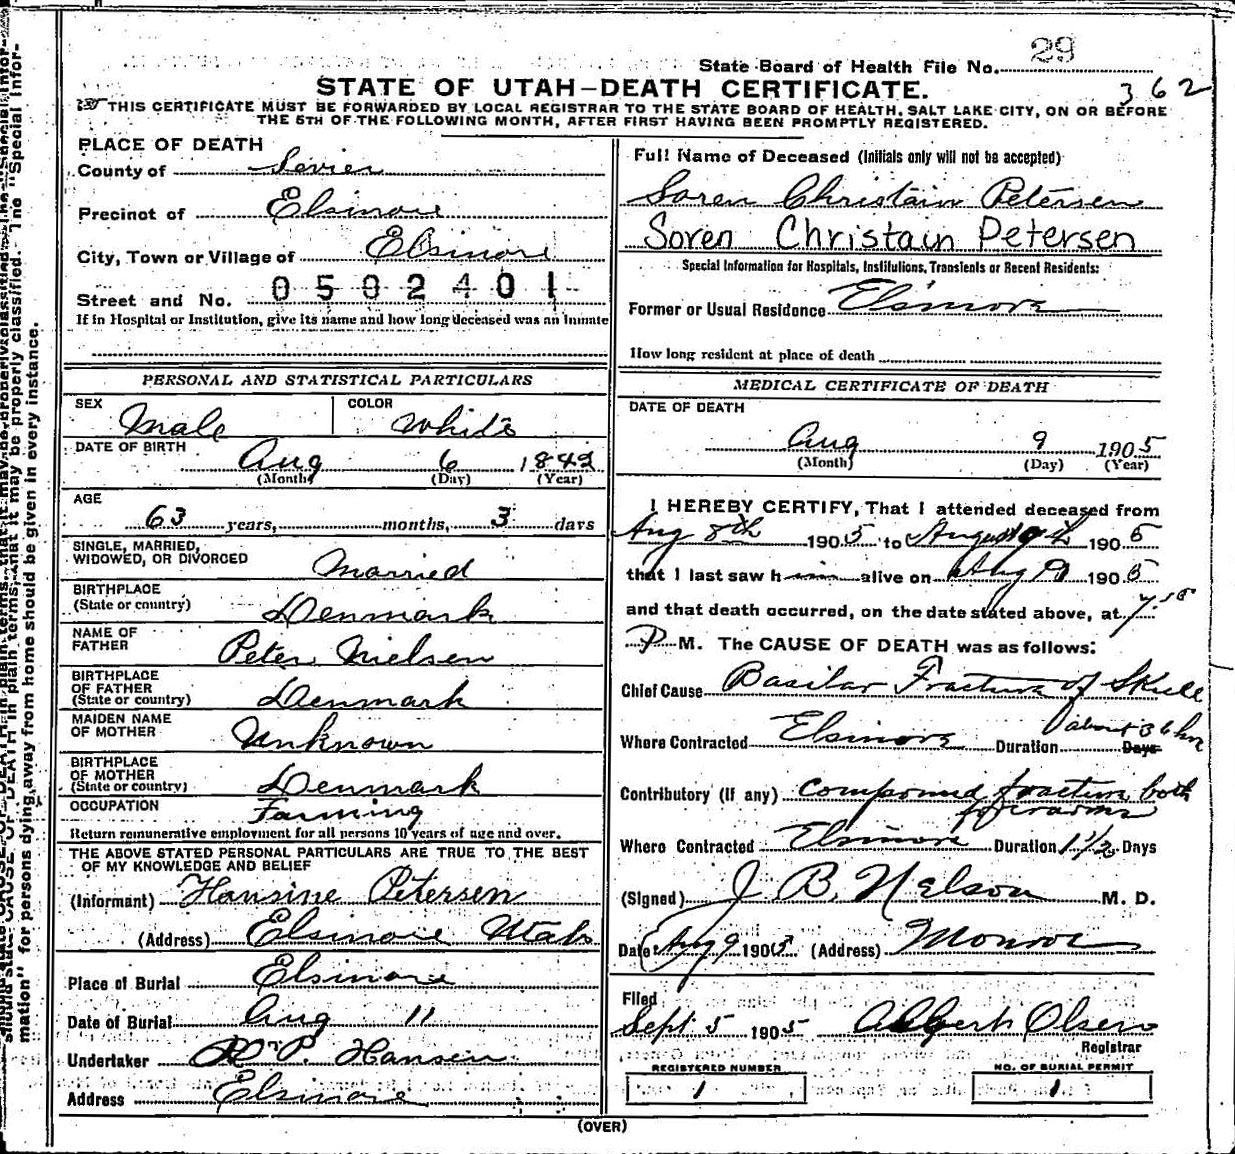 29
State Board of Health File No.
362
STATE OF UTAH-DEATH CERTIFICATE.
THIS CERTIFICATE MUST BE FORWARDED BY LOCAL REGISTRAR TO THE STATE BOARD OF HEALTH, SALT LAKE CITY, ON OR BEFORE
THE 5TH OF THE FOLLOWING MONTH, AFTER FIRST HAVING BEEN PROMPTLY REGISTERED.
PLACE OF DEATH
County of Sevier
Precinct of Elsinore
City, Town or Village of Elsinore
Street and No. 0502401
If in Hospital or Institution, give its name and how long deceased was an inmate
PERSONAL AND STATISTICAL PARTICULARS
SEX Male COLOR White
DATE OF BIRTH Aug 6 1842
(Month) (Day) (Year)
AGE
63 years, months, 3 days
SINGLE, MARRIED,
WIDOWED, OR DIVORCED Married
BIRTHPLACE
(State or country) Denmark
NAME OF
FATHER Peter Nielsen
BIRTHPLACE
OF FATHER
(State or country) Denmark
MAIDEN NAME
OF MOTHER Unknown
BIRTHPLACE
OF MOTHER
(State or country) Denmark
OCCUPATION Farming
Return remunerative employment for all persons 10 years of age and over.
THE ABOVE STATED PERSONAL PARTICULARS ARE TRUE TO THE BEST
OF MY KNOWLEDGE AND BELIEF
(Informant) Hansine Petersen
(Address) Elsinore Utah
Place of Burial Elsinore
Date of Burial Aug 11
Undertaker P. Hansen
Address Elsinore
Full Name of Deceased (Initials only will not be accepted)
Soren Christain Petersen
Soren Christain Petersen
Special Information for Hospitals, Institutions, Transients or Recent Residents:
Former or Usual Residence Elsinore
How long resident at place of death
MEDICAL CERTIFICATE OF DEATH
DATE OF DEATH
Aug 9 1905
(Month) (Day) (Year)
I HEREBY CERTIFY, That I attended deceased from
Aug 8th 1905 to August 9th 1905
that I last saw him alive on Aug 9 1905
and that death occurred, on the date stated above, at 7
P M. The CAUSE OF DEATH was as follows:
Chief Cause Basilar Fracture of Skull
Where Contracted Elsinore Duration about 36 hrs Days
Contributory (if any) Compound fracture both
forearms
Where Contracted Elsinore Duration 1 1/2 Days
(Signed) J. B. Nelson M. D.
Date Aug 9 1905 (Address) Monroe
Filed
Sept 5 1905 Albert Olsen
Registrar
REGISTERED NUMBER NO. OF BURIAL PERMIT
1 1
(OVER)
mation" for persons dying away from home should be given in every instance.